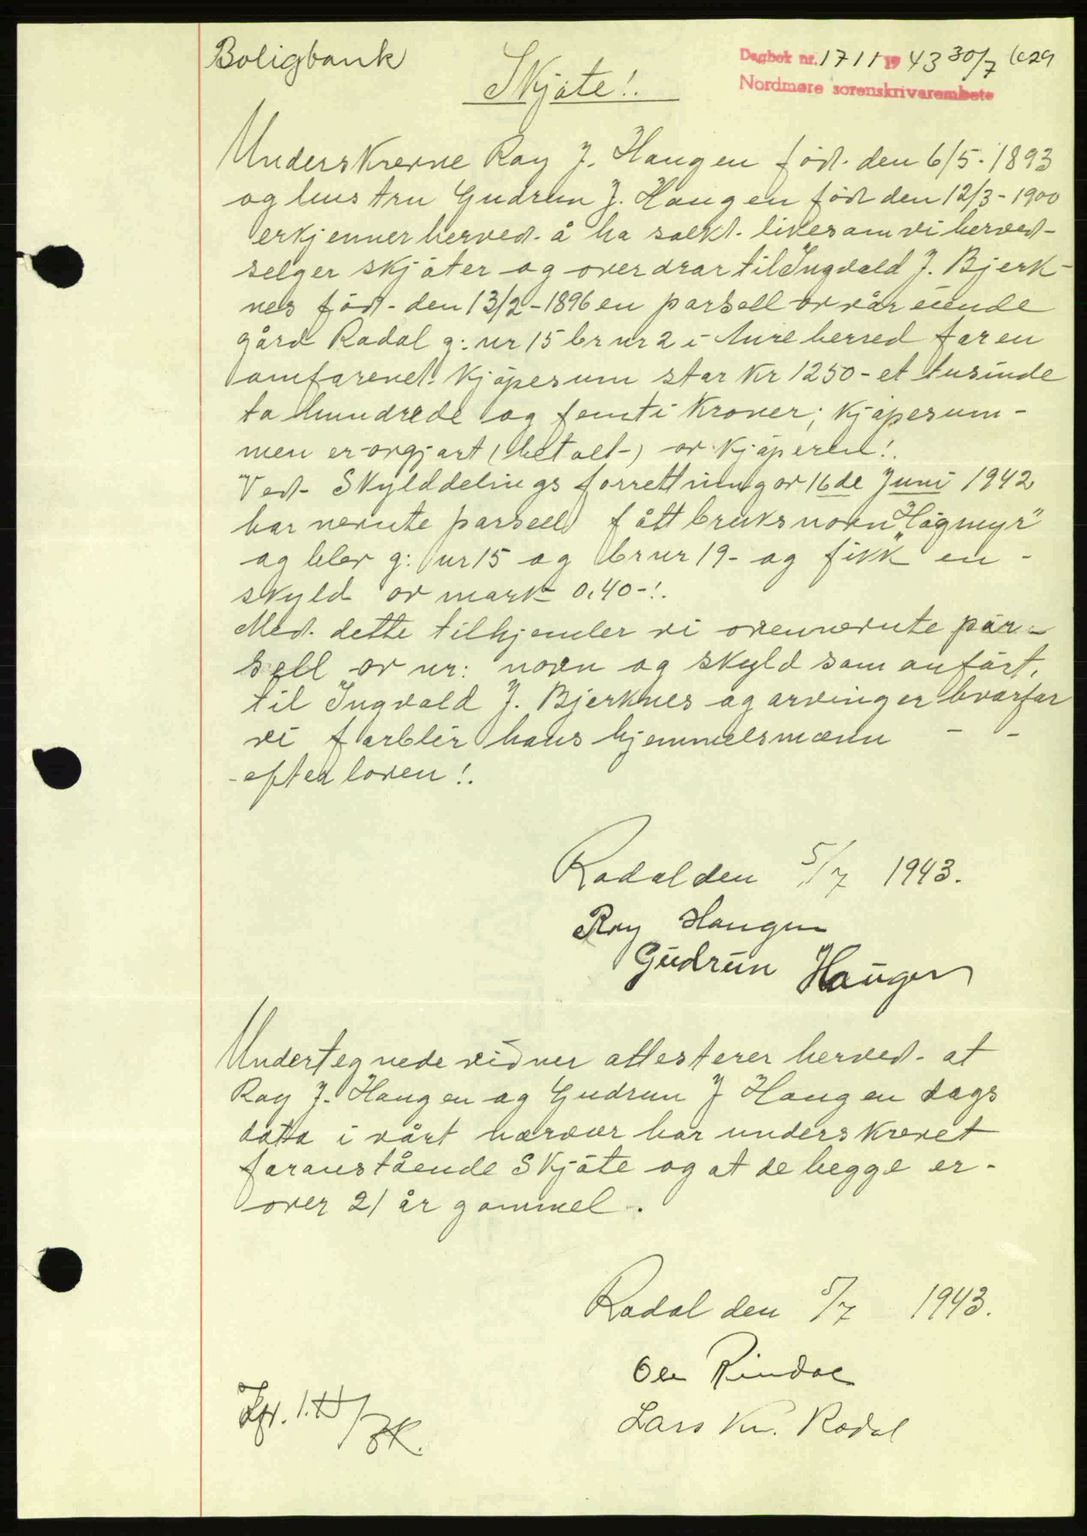 Boligbank
Dagbok nr. 1711 1943 30/7
Nordmøre sorenskrivarembete
Skjøte!.
Underskrevne Roy J. Haugen fød. den 6/5-1893
og hustru Gudrun J. Haugen fød den 12/3-1900
erkjenner herved å ha solkt likesom vi herved-
selger skjøter og overdrar til Ingvald J. Bjerk-
nes fød- den 13/2-1896 en parsell av vår eiende
gård Rodal g: nr 15 br nr 2 i Aure herred for en
omforenet kjøpesum stor kr 1250- et tusinde
to hundrede og femti kroner; kjøpesum-
men er orgjort (betalt-) av kjøperen!.
Ved- Skylddelings forrettning av 16de Juni 1942
har nevnte parsell fått bruksnavn "Høgmyr"
og blev g: nr 15 og br nr 19- og fikk en -
skyld av mark 0,40-!.
Med. dette tilhjemler vi ovennevnte par-
sell av nr: navn og skyld som anført,
til Ingvald J. Bjerknes og arvinger hvorfor
vi forblir hans hjemmelsmenn - -
-efter loven!.
Rodal den 5/7 1943.
Roy Haugen
Gudrun Haugen
Undertegnede vidner attesterer herved- at
Roy J. Haugen og Gudrun J Haugen dags
dato i vårt nærvær har underskrevet
foranstående Skjøte og at de begge er-
over 21 år gammel.
Rodal den 5/7 1943.
Ole Rindal
Lars Kr. Rodal